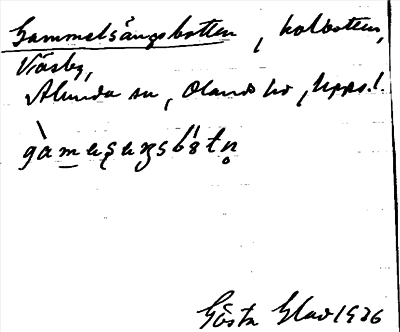 Gammelsängsbotten, kolbotten,
Väsby,
Alunda sn, Olands hd, Upps.l.
Gösta Glad 1936